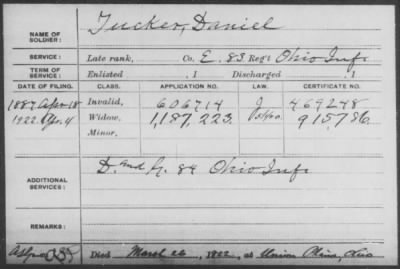 NAME OF SOLDIER: Tucker, Daniel
SERVICE: Late rank, Co. E. 83 Reg't Ohio Inf.
TERM OF SERVICE: Enlisted , 1 Discharged , 1
DATE OF FILING. CLASS. APPLICATION NO. LAW. CERTIFICATE NO.
1887 Apr 18 Invalid, 606714 J 469248
1922. Apr. 4 Widow, 1,187,223. 915,786.
Minor,
ADDITIONAL SERVICES: D. and G. 84 Ohio Inf.
REMARKS:
Died March 26, 1922, at Union Ohio